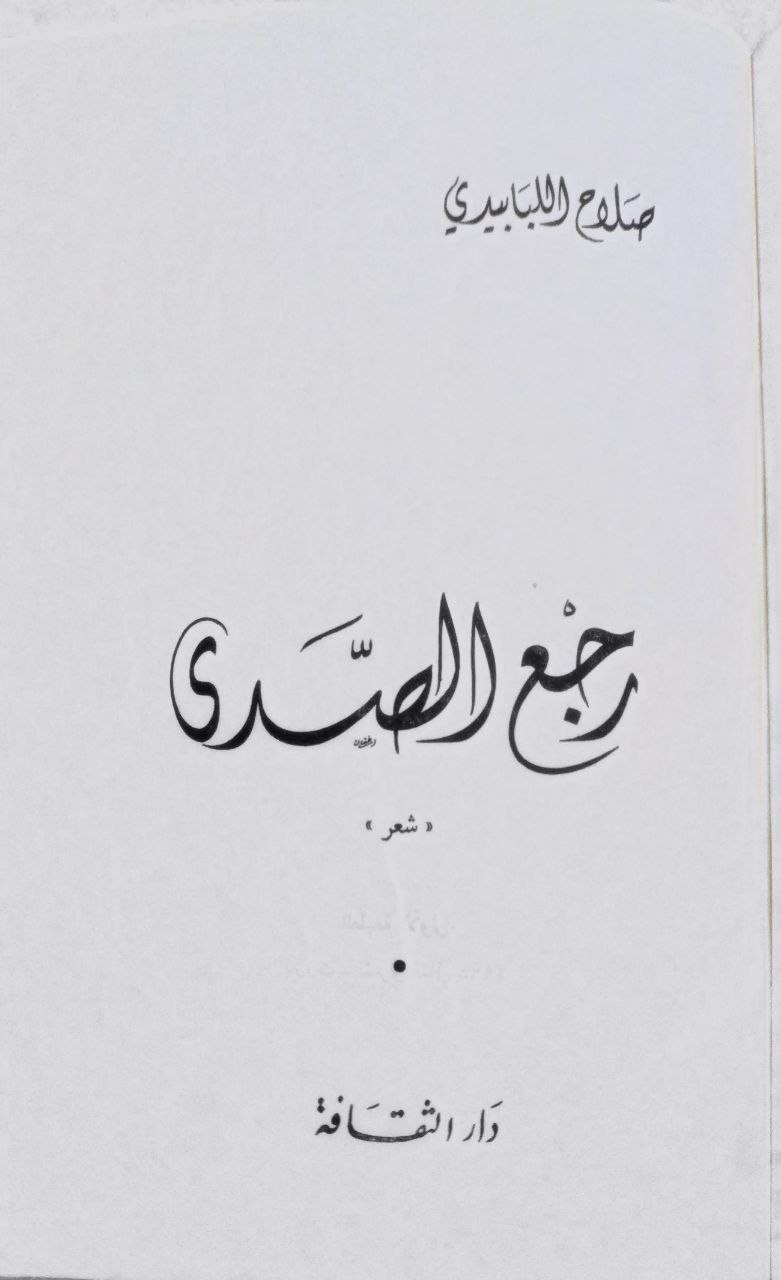 صَلاح اللبَابيدي
رجْع الصَّدى
« شعر »
دَار الثقَافة